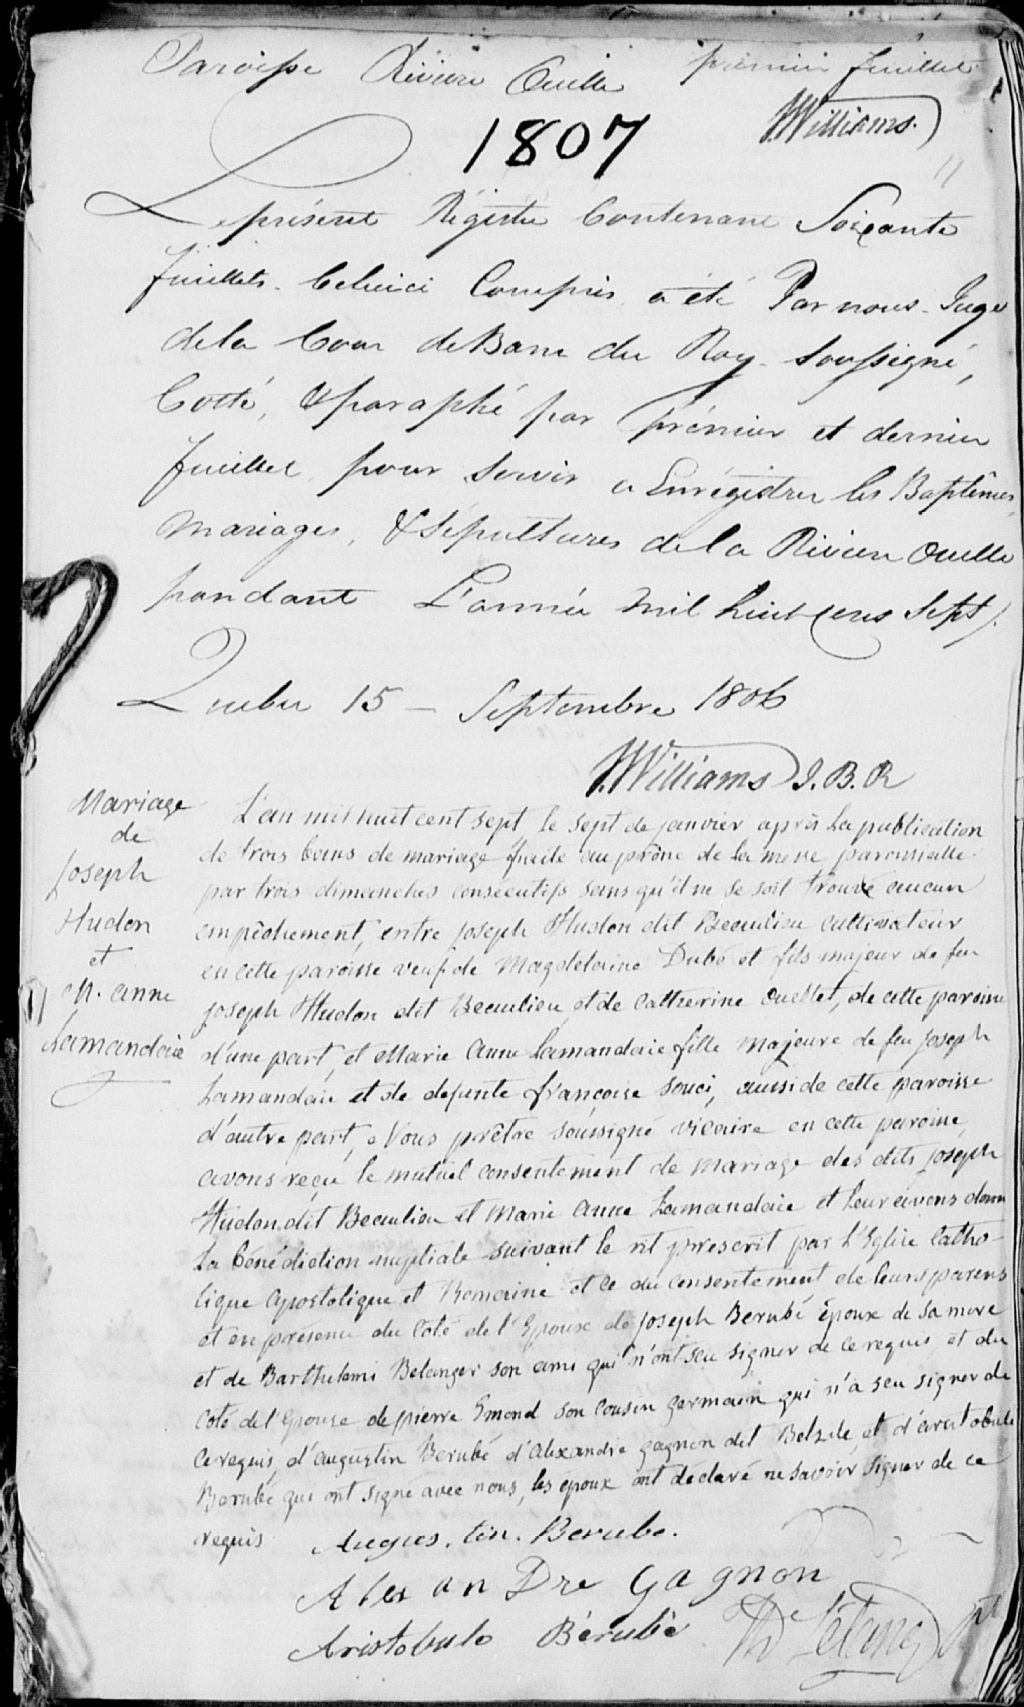 Paroisse Rivière Ouelle premier feuillet
JWilliams.
1807
Le présent Régistre Contenant Soixante
feuillets. Celuici Compris a été Par nous Juge
dela Cour de Banc du Roy Soussigné,
Cotté, & paraphé par prémier et dernier
feuillet, pour Servir a Enrégistrer les Baptêmes,
Mariages, & Sépultures de la Rivière Ouelle
pendant L'année Mil huit Cens Sept/.
Quebec 15 – Septembre 1806
JWilliams J. B. R
Mariage
de
Joseph
Hudon
et
M. anne
Lamandaie
L'an mil huit cent sept, le sept de janvier après la publication
de trois bans de mariage faite au prône de la messe paroissialle
par trois dimanches consécutifs sans qu'il ne se soit trouvé aucun
empêchement, entre joseph Hudon dit Beaulieu cultivateur
en cette paroisse veuf de Magdelaine Dubé et fils majeur de feu
joseph Hudon dit Beaulieu et de catherine Ouellet, de cette paroisse
d'une part, et Marie Anne Lamandaie fille majeure de feu joseph
Lamandaie et de defunte françoise souci, aussi de cette paroisse
d'autre part, Nous prêtre soussigné vicaire en cette paroisse,
avons reçu le mutuel consentement de mariage des dits joseph
Hudon dit Beaulieu et Marie Anne Lamandaie et leur avons donn
la bénédiction nuptiale suivant le rit prescrit par l'Eglise Catho-
lique apostolique et Romaine et ce du consentement de leurs parens
et en présence du coté de l'Epoux de joseph Berubé Epoux de sa mere
et de Barthelemi Belanger son ami qui n'ont seu signer de ce requis et du
coté de l'Epouse de pierre Emond son cousin germain qui n'a seu signer de
ce requis, d'augustin Berubé d'alexandre gagnon dit Belzile et d'aristobule
Berubé qui ont signé avec nous, les epoux ont declaré ne savoir signer de ce
requis
Augus. tin. Berube.
Alex an Dre Gagnon
Aristobule Bérubé
Létang ptr